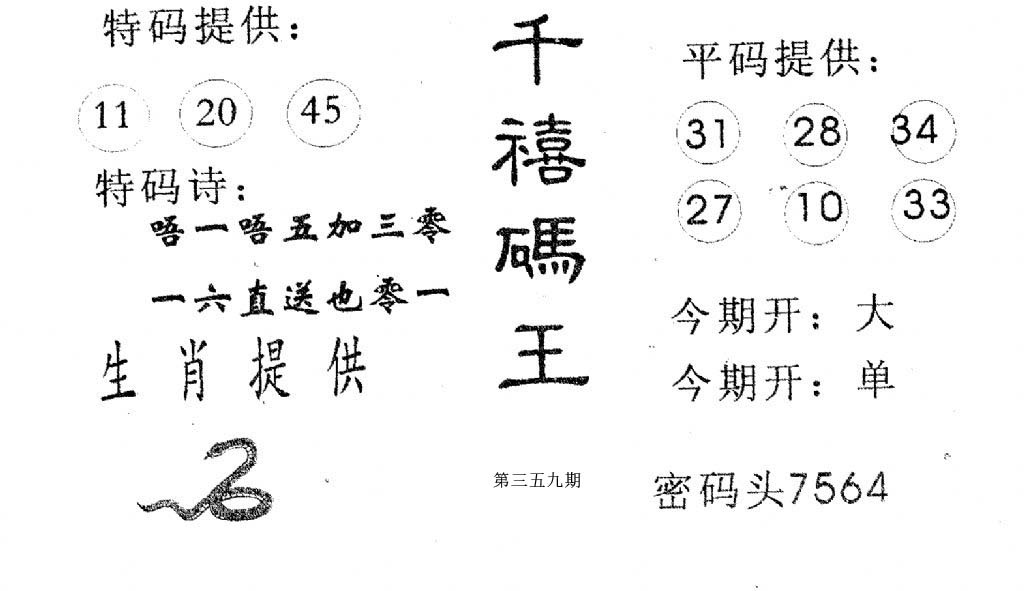 特码提供：
11 20 45
特码诗：
唔一唔五加三零
一六直送也零一
生肖提供
千禧碼王
第三五九期
平码提供：
31 28 34
27 10 33
今期开：大
今期开：单
密码头7564